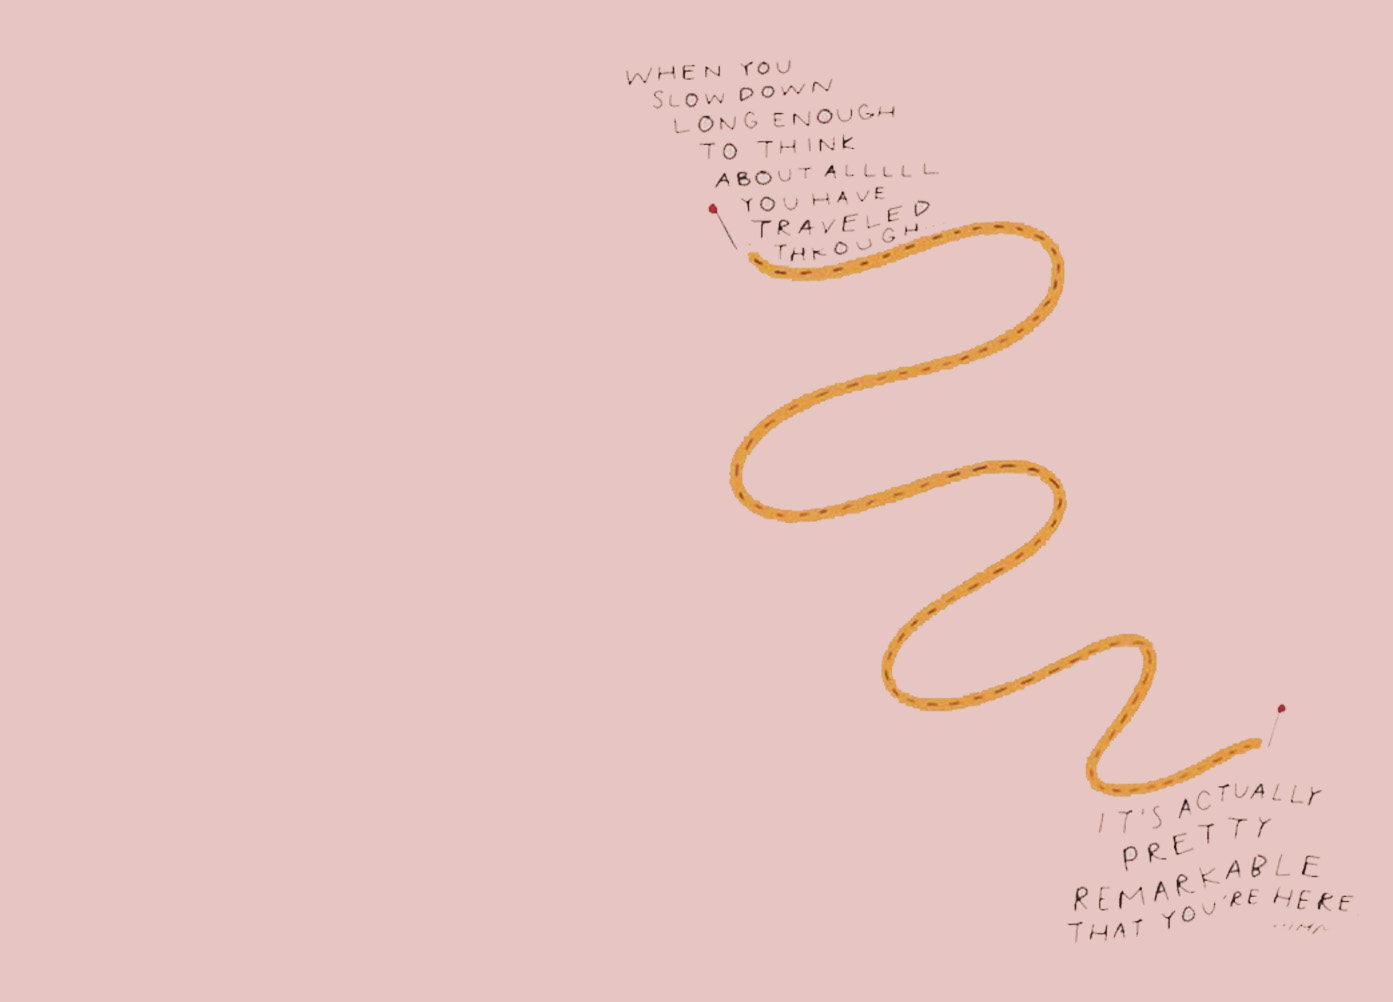 WHEN YOU
SLOW DOWN
LONG ENOUGH
TO THINK
ABOUT ALLLLL
YOU HAVE
TRAVELED
THROUGH...
IT'S ACTUALLY
PRETTY
REMARKABLE
THAT YOU'RE HERE